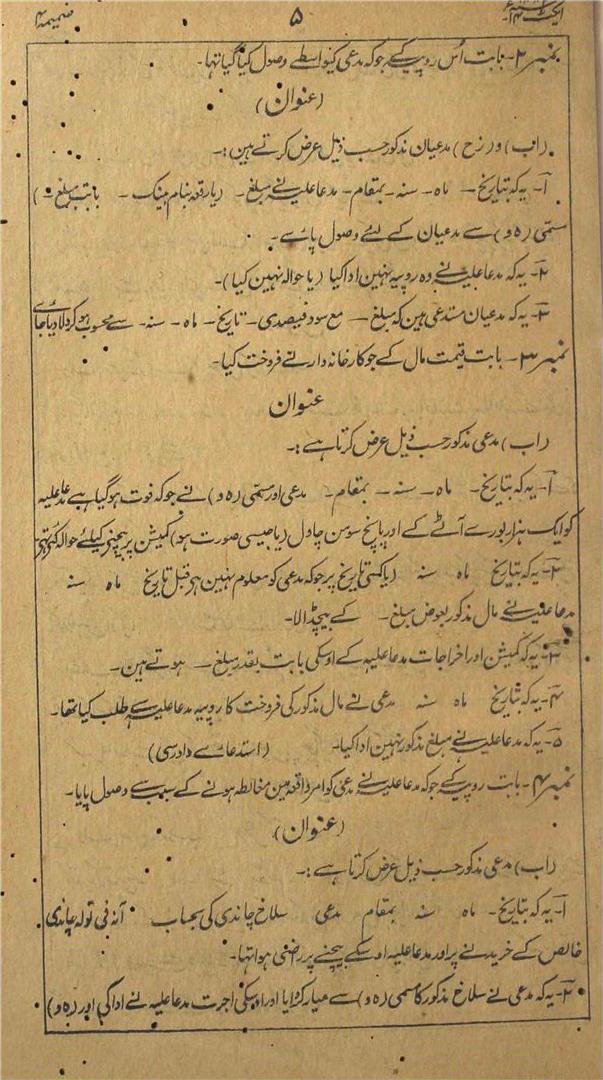 ضمیمہ ۴ ۵ ایکٹ ۱۴
نمبر ۲- بابت اُس روپیہ کے جو کہ مدعی کیواسطے وصول کیا گیا تہا-
(عنوان)
(اب) و (ج ح) مدعیان مذکور حسب ذیل عرض کرتے ہین:-
۱- یہ کہ بتاریخ- ماہ- سنہ- بمقام- مدعا علیہ نے مبلغ- (یا رقعہ بنام بینک - بابت مبلغ -)
مسمّی (ہ و) سے مدعیان کے لیئے وصول پائے-
۲- یہ کہ مدعا علیہ نے وہ روپیہ نہین ادا کیا (یا حوالہ نہین کیا)-
۳- یہ کہ مدعیان مستدعی ہین کہ مبلغ - مع سود فیصدی- تاریخ- ماہ- سنہ- سے محسوب ہو کر دلایا جائے
نمبر ۳- بابت قیمت مال کے جو کارخانہ دار نے فروخت کیا-
عنوان
(اب) مدعی مذکور حسب ذیل عرض کرتا ہے:-
۱- یہ کہ بتاریخ- ماہ- سنہ- بمقام- مدعی اور مسمّی (ہ و) نے جو کہ فوت ہو گیا ہے مدعا علیہ
کو ایک ہزار بورے آٹے کے اور پانچ سو من چاول (یا جیسی صورت ہو) کمیشن پر بیچنے کیلئے حوالہ کئے تہے
۲- یہ کہ بتاریخ ماہ سنہ (یا کسی تاریخ پر جو کہ مدعی کو معلوم نہین ہے قبل تاریخ ماہ سنہ
مدعا علیہ نے مال مذکور بعوض مبلغ- کے بیچ ڈالا-
۳- یہ کہ کمیشن اور اخراجات مدعا علیہ کے اوسکی بابت بقدر مبلغ- ہوتے ہین-
۴- یہ کہ بتاریخ ماہ سنہ مدعی نے مال مذکور کی فروخت کا روپیہ مدعا علیہ سے طلب کیا تھا-
۵- یہ کہ مدعا علیہ نے مبلغ مذکور نہین ادا کیا- (استدعائے دادرسی)
نمبر ۴- بابت روپیہ کے جو کہ مدعا علیہ نے مدعی کو امر واقعہ مین مغالطہ ہونے کے سبب سے وصول پایا-
(عنوان)
(اب) مدعی مذکور حسب ذیل عرض کرتا ہے:-
۱- یہ کہ بتاریخ- ماہ سنہ بمقام مدعی سلاخ چاندی کی بحساب آنہ فی تولہ چاندی
خالص کے خریدنے پر اور مدعا علیہ اوسکے بیچنے پر راضی ہوا تہا-
۲- یہ کہ مدعی نے سلاخ مذکور کا مسمی (ہ و) سے عیار کرایا اور اوسکی اجرت مدعا علیہ نے ادا کی اور (ہ و)